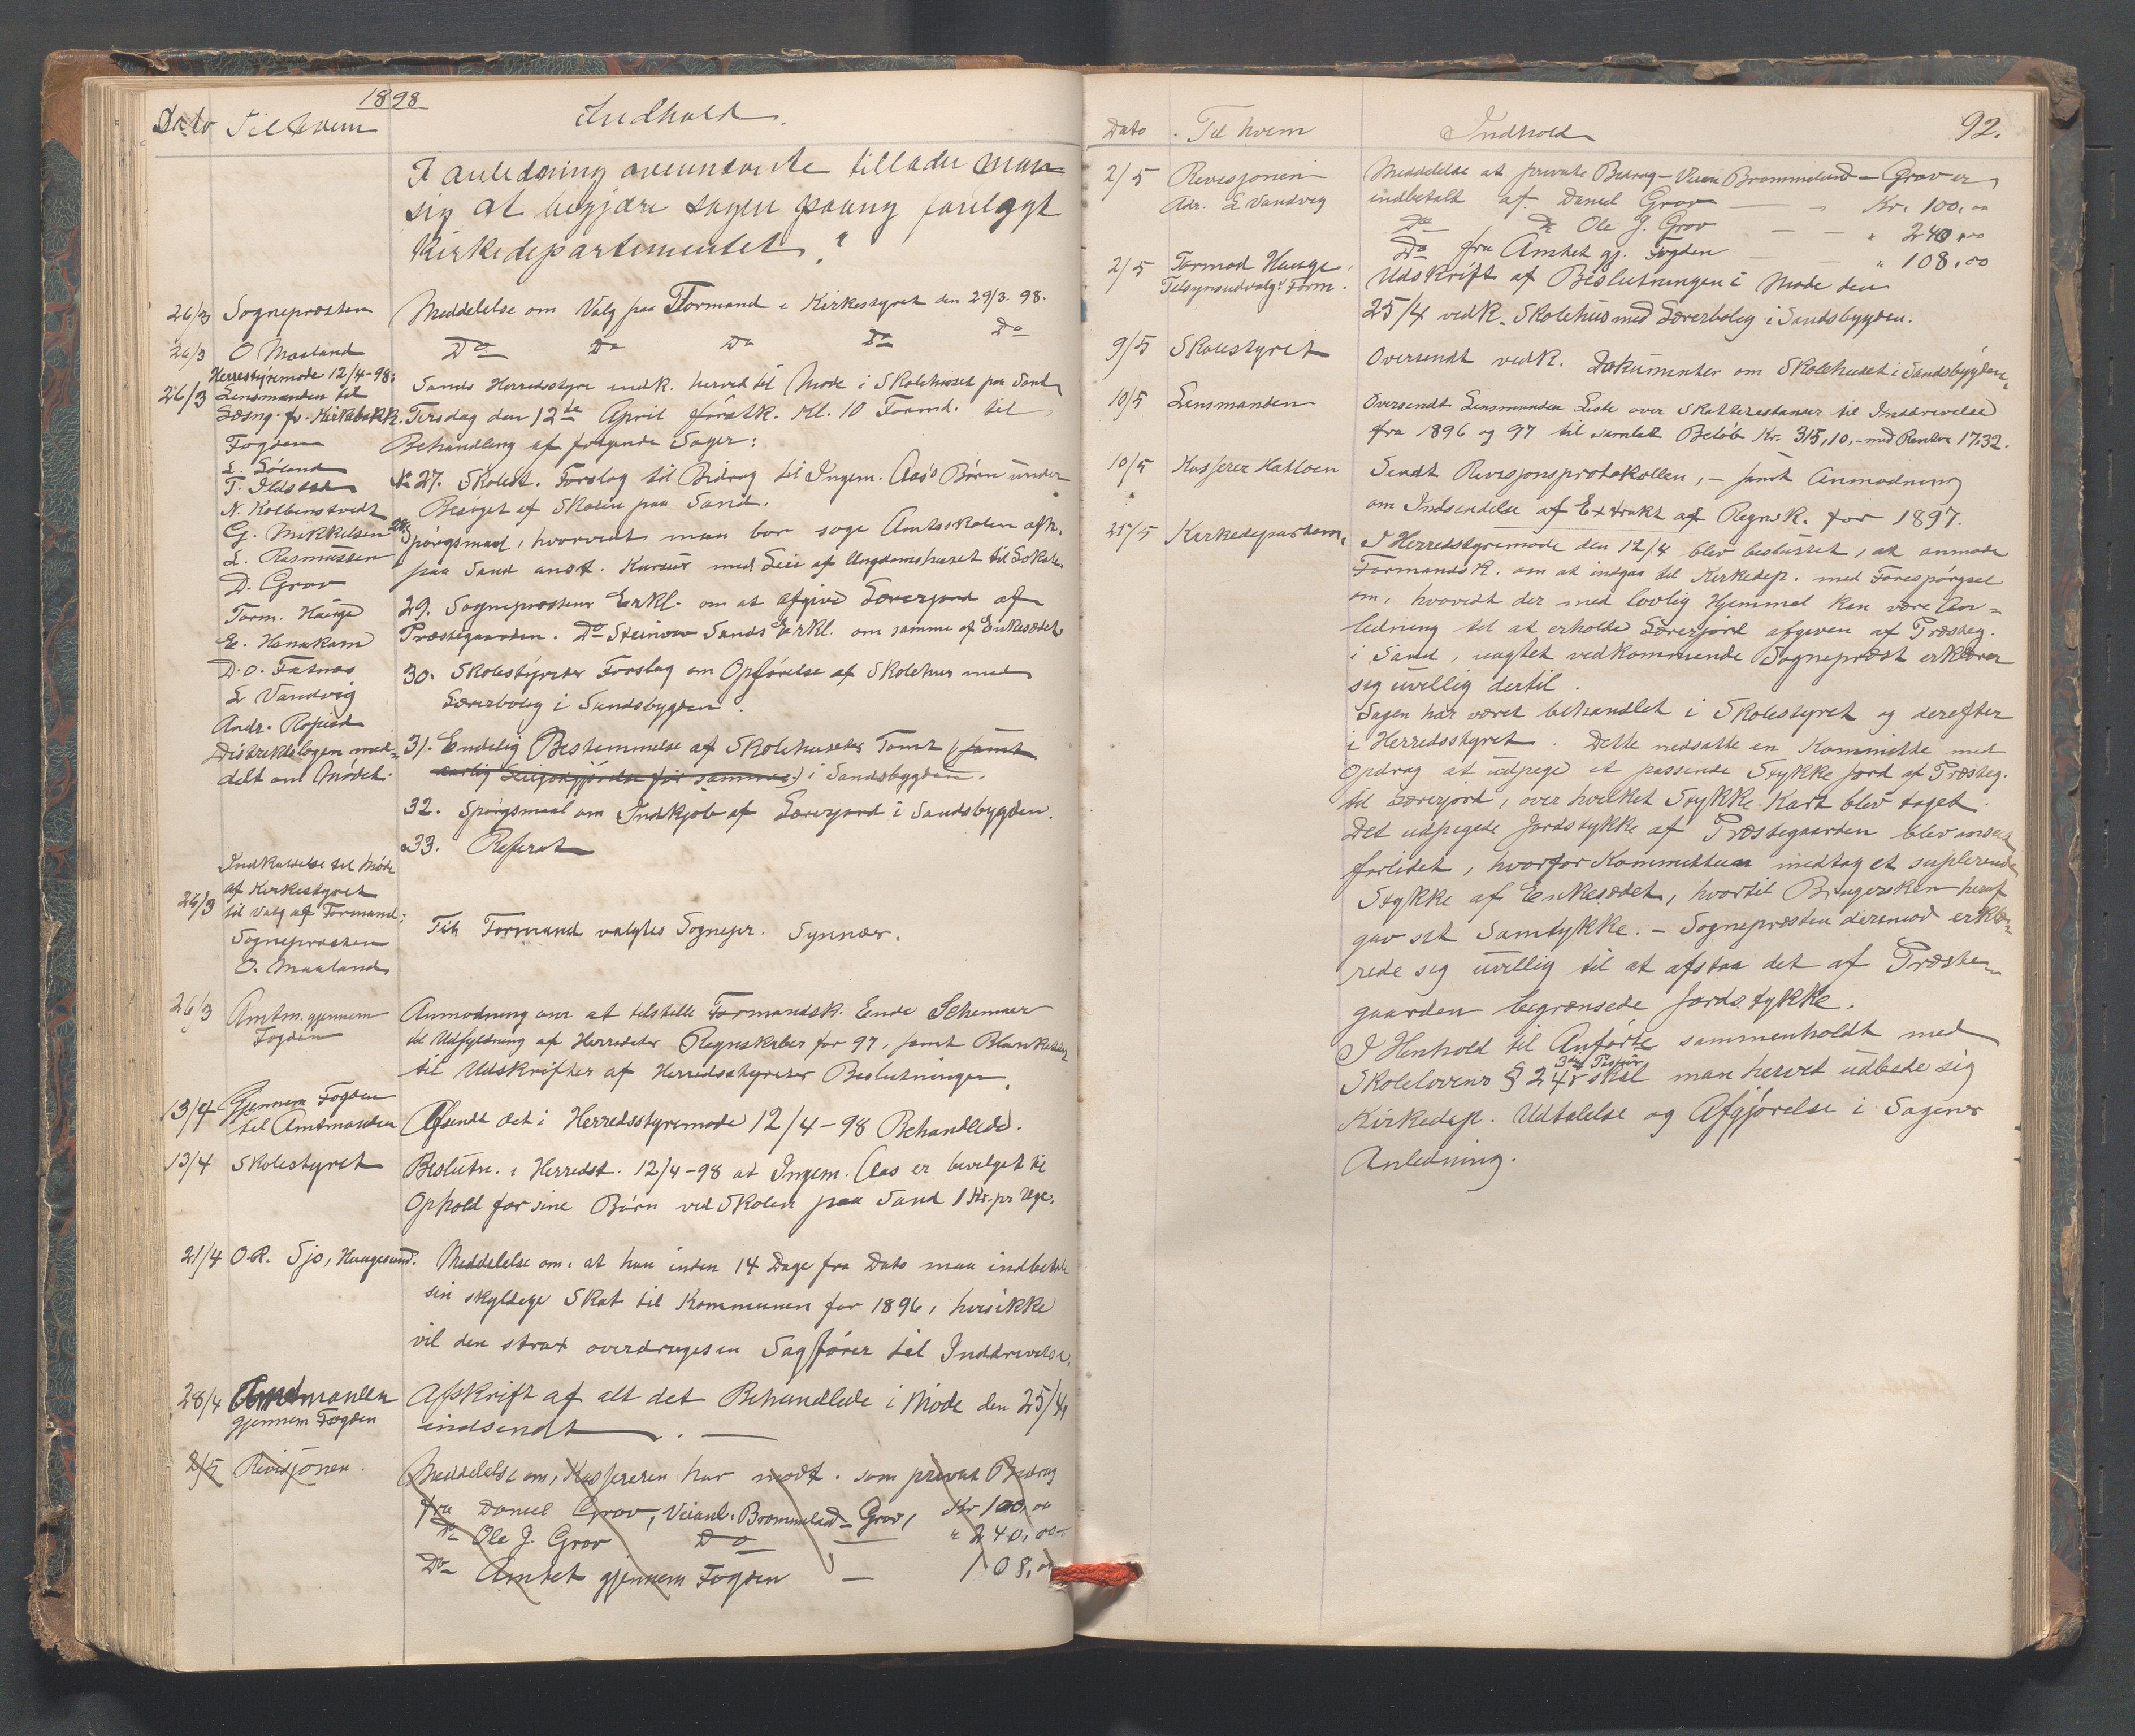 1898
Dato Til hvem Indhold.
I anledning ovennævnte tillader man
sig at begjære sagen paany forelagt
Kirkedepartementet.
26/3 Sognepræsten Meddelelse om Valg paa Formand i Kirkestyret den 29/3. 98.
26/3 O Maaland Do Do Do Do Do
Herredstyremøde 12/4-98:
26/3 Lensmanden til Sands Herredsstyre indk. herved til Møde i Skolehuset paa Sand
Læsng. fr. Kirkebakk. Tirsdag den 12te April førstk. Kl. 10 Formd. til
Fogden Behandling af følgende Sager:
L. Løland
T. Ildstad No 27. Skolest. Forslag til Bidrag til Ingem. Aas's Børn under
N. Kolbenstvedt Besøget af Skolen paa Sand.
G. Mikkelsen 28. Spørgsmaal, hvorvidt man bør søge Amtsskolen afh.
L. Rasmussen paa Sand anst. Kursus med Leie af Ungdomshuset til Lokale.
D. Grov
Torm. Hauge 29. Sognepræstens Erkl. om at afgive Lærerjord af
E. Honakam Præstegaarden. Do Steinow Sands Erkl. om samme af Enkesædet
D. O. Fatnes 30. Skolestyrets Forslag om Opførelse af Skolehus med
L Vandvig Lærerbolig i Sandsbygden.
Andr. Ropeid
Distriktslægen med- 31. Endelig Bestemmelse af Skolehusets Tomt (samt
delt om Mødet. særlig Leiegodtgjørelse for samme) i Sandsbygden.
32. Spørgsmaal om Indkjøb af Lærerjord i Sandsbygden.
33. Referat
Indkaldelse til Møde
af Kirkestyret
26/3 til Valg af Formand:
Sognepræsten Til Formand valgtes Sognepr. Synnær.
O. Maaland
26/3 Amtm. gjennem Anmodning om at tilstille Formandsk. Ende Schemaer
Fogden til Udfyldning af Herredets Regnskaber for 97, samt Blanketter
til Udskrifter af Herredsstyrets Beslutninger.
13/4 Gjennem Fogden
til Amtmanden Afsendt det i Herredsstyremøde 12/4-98 Behandlede.
13/4 Skolestyret Beslutn. i Herredst. 12/4-98 at Ingem. Aas er bevilget til
Ophold for sine Børn ved Skolen paa Sand 1 Kr. pr Uge.
21/4 O. R. Sjo, Haugesund. Meddelelse om, at han inden 14 Dage fra Dato maa indbetale
sin skyldige Skat til Kommunen for 1896, hvis ikke
vil den strax overdrages en Sagfører til Inddrivelse.
28/4 Amtmanden Afskrift af alt det Behandlede i Møde den 25/4,
gjennem Fogden indsendt.
2/5 Revisjonen. Meddelelse om, Kassereren har modt. som privat Bidrag
fra Daniel Grov, Veianl. Brommeland-Grov, Kr 100,00
Do Ole J. Grov Do " 240,00
Do Amtet gjennem Fogden 108,00
92.
Dato. Til hvem Indhold
2/5 Revisjonen Meddelelse at private Bidrag - Veien Brommeland-Grov er
Adr. L Vandvig indbetalt af Daniel Grov Kr. 100,00
Do Do Ole J. Grov " 240,00
Do fra Amtet gj. Fogden " 108,00
2/5 Tormod Hauge, Udskrift af Beslutningen i Møde den
Tilsynsudvalgs Form. 25/4 vedk. Skolehus med Lærerbolig i Sandsbygden.
9/5 Skolestyret Oversendt vedk. Dokumenter om Skolehuset i Sandsbygden.
10/5 Lensmanden Oversendt Lensmanden Liste over Skatterestancer til Inddrivelse
fra 1896 og 97 til samlet Beløb Kr. 315,10,- med Renter 17.32.
10/5 Kasserer Hatloen Sendt Revisjonsprotokollen, - samt Anmodning
om Indsendelse af Extrakt af Regnsk. for 1897.
25/5 Kirkedepartem. I Herredstyremøde den 12/4 blev besluttet, at anmode
Formandsk. om at indgaa til Kirkedep. med Forespørgsel
om, hvorvidt der med lovlig Hjemmel kan være An-
ledning til at erholde Lærerjord afgiven af Præsteg.
i Sand, uagtet vedkommende Sogneprest erklærer
sig uvillig dertil.
Sagen har været behandlet i Skolestyret og derefter
i Herredsstyret. Dette nedsatte en Kommitte med
Opdrag at udpege et passende Stykke Jord af Præsteg.
til Lærerjord, over hvilket Stykke Kart blev taget.
Det udpegede Jordstykke af Præstegaarden blev anseet
forlidet, hvorfor Kommitteen medtog et suplerende
Stykke af Enkesædet, hvortil Brugersken heraf
gav sit Samtykke. - Sognepræsten derimod erklæ-
rede sig uvillig til at afstaa det af Præste-
gaarden begrænsede Jordstykke.
I Henhold til Anførte sammenholdt med
Skolelovens § 24 skal man hervet udbede sig
Kirkedep. Udtalelse og Afgjørelse i Sagens
Anledning.